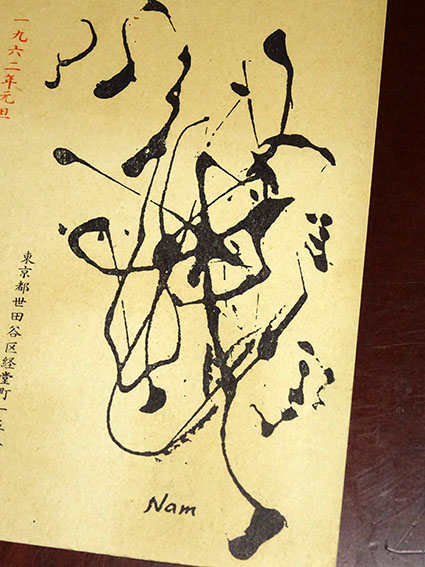 一九六二年元旦
東京都世田谷区経堂町一
Nam